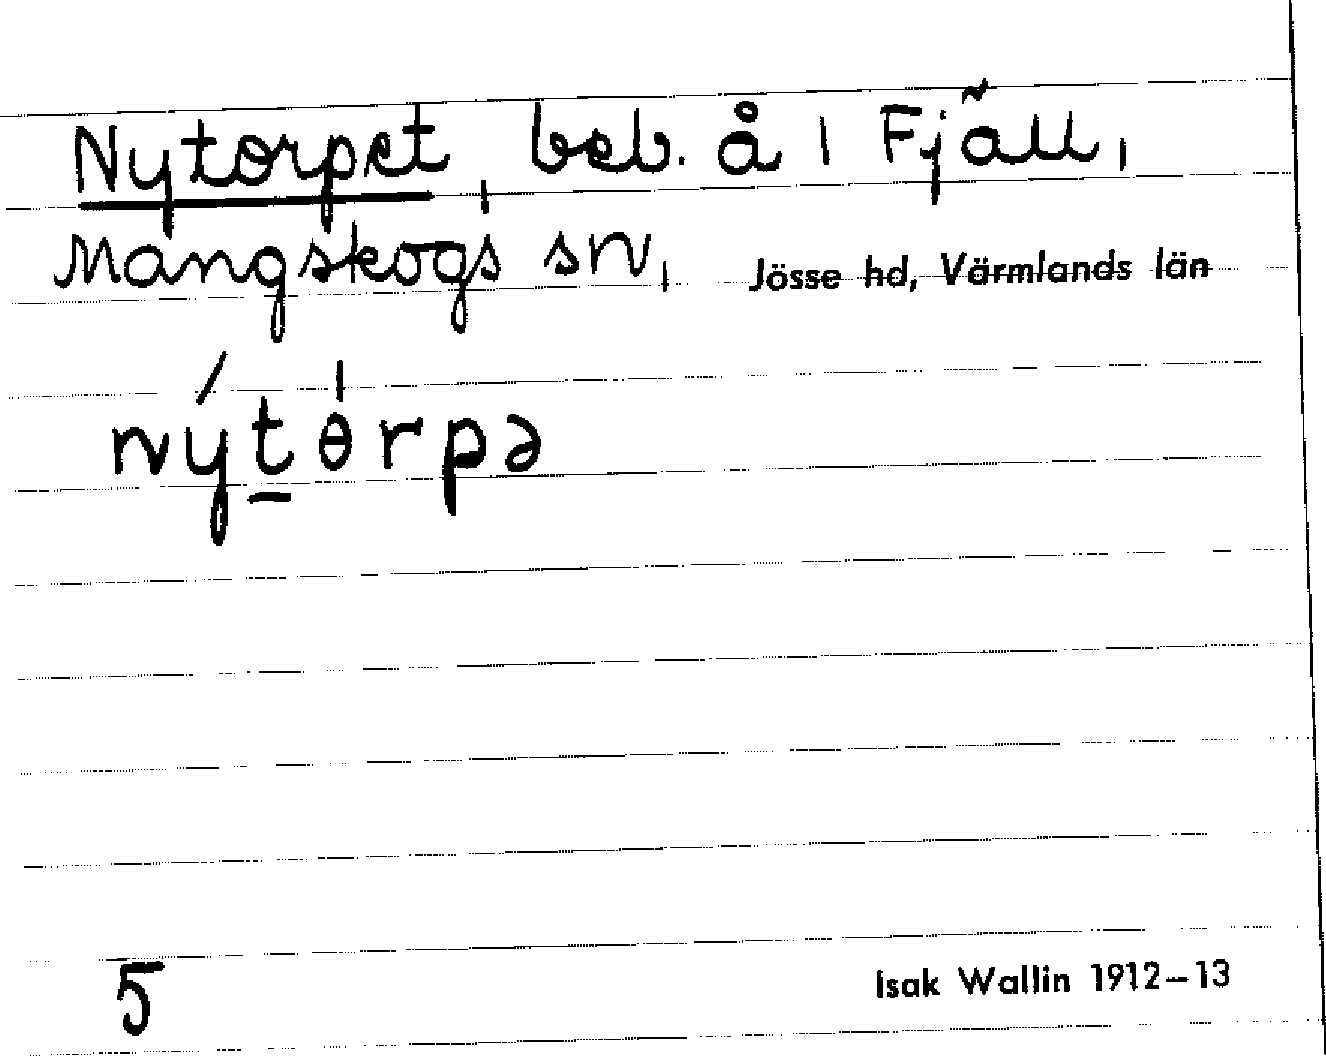 Nytorpet, beb. å 1 Fjäll,
Mangskogs sn, Jösse hd, Värmlands län
nýtɵ́rpə
5 Isak Wallin 1912–13